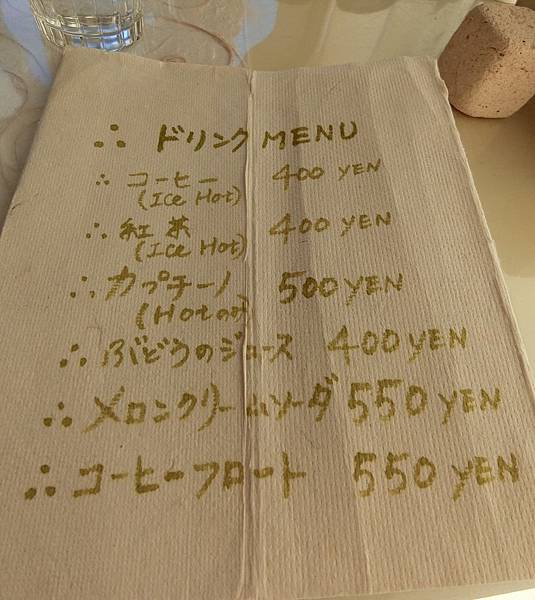 ∴ ドリンク MENU
∴ コーヒー 400 YEN
(Ice Hot)
∴ 紅茶 400 YEN
(Ice Hot)
∴ カプチーノ 500 YEN
(Hotのみ)
∴ ぶどうのジュース 400 YEN
∴ メロンクリームソーダ 550 YEN
∴ コーヒーフロート 550 YEN